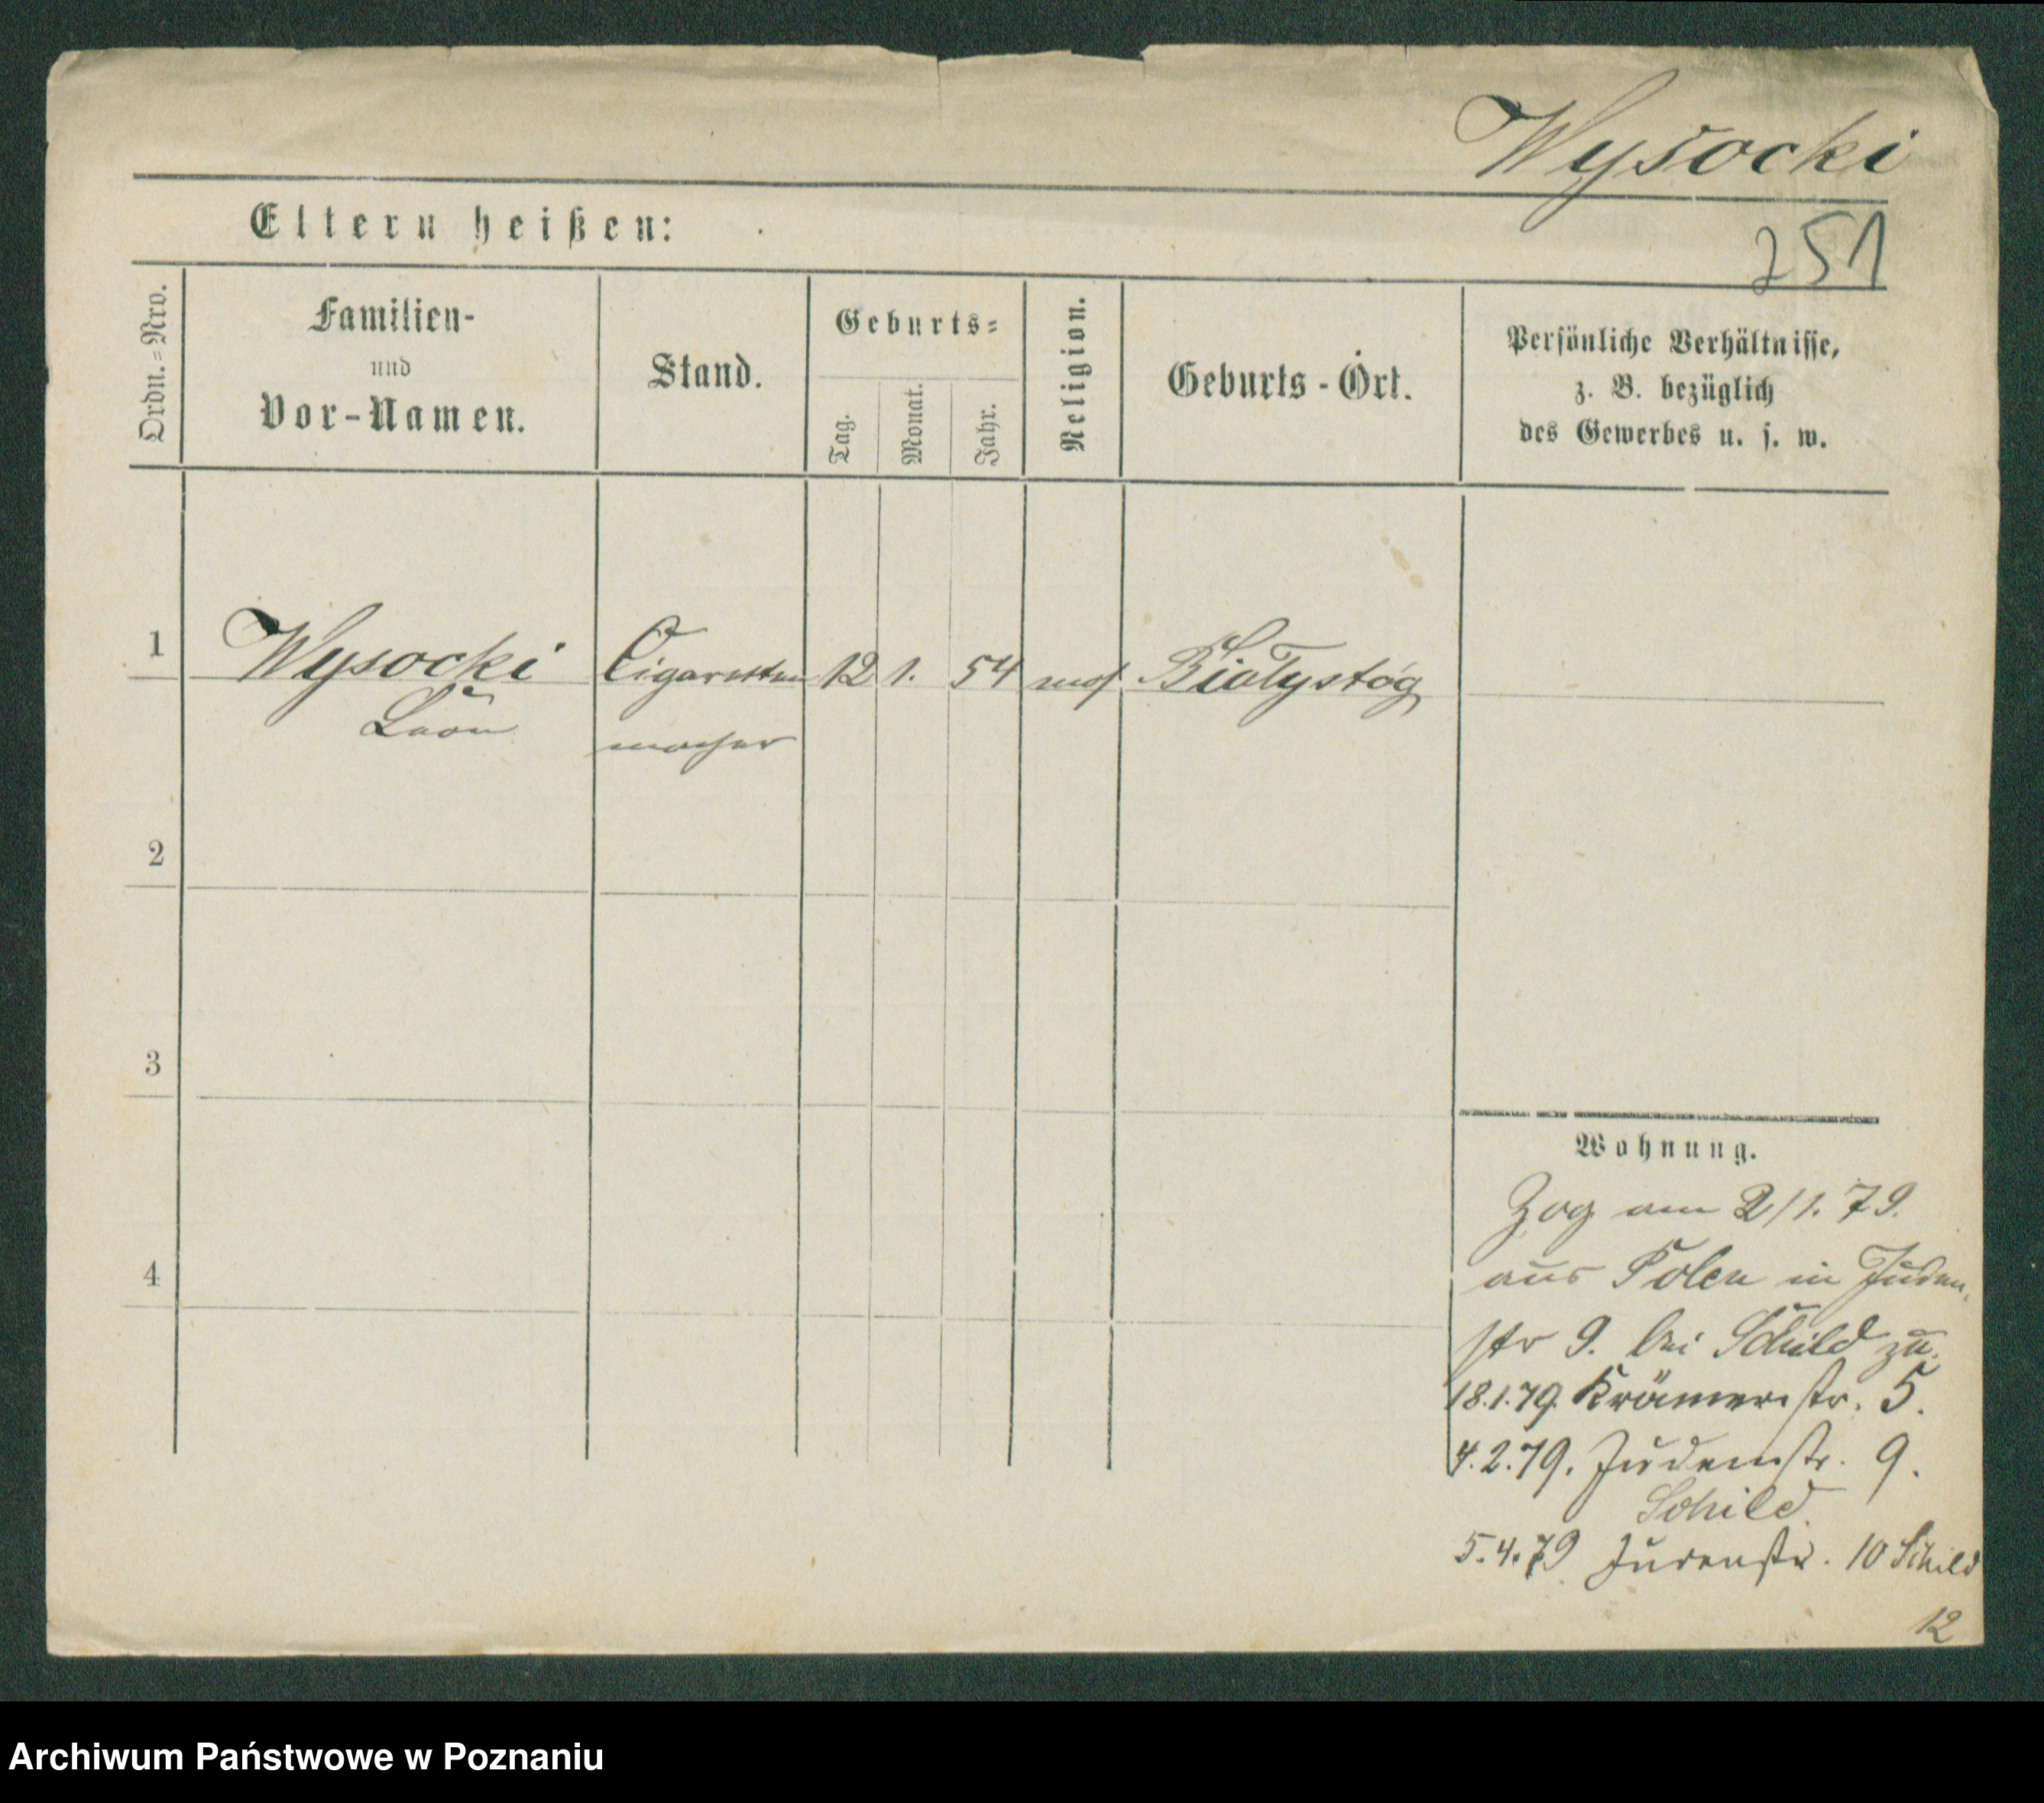 Wysocki
251
Eltern heißen:
Ordn.=Nro.
Familien-
und
Vor-Namen.
Stand.
Geburts=
Tag.
Monat.
Jahr.
Religion.
Geburts-Ort.
Persönliche Verhältnisse,
z. B. bezüglich
des Gewerbes u. s. w.
1 Wysocki Cigaretten 12 1. 54 mos Białystóg
Leon macher
2
3
4
Wohnung.
Zog am 2/1. 79.
aus Polen in Juden-
str 9. bei Schild zu.
18.1.79. Krämerstr. 5.
4.2.79. Judenstr. 9.
Schild.
5.4.79 Judenstr. 10 Schild
12
Archiwum Państwowe w Poznaniu